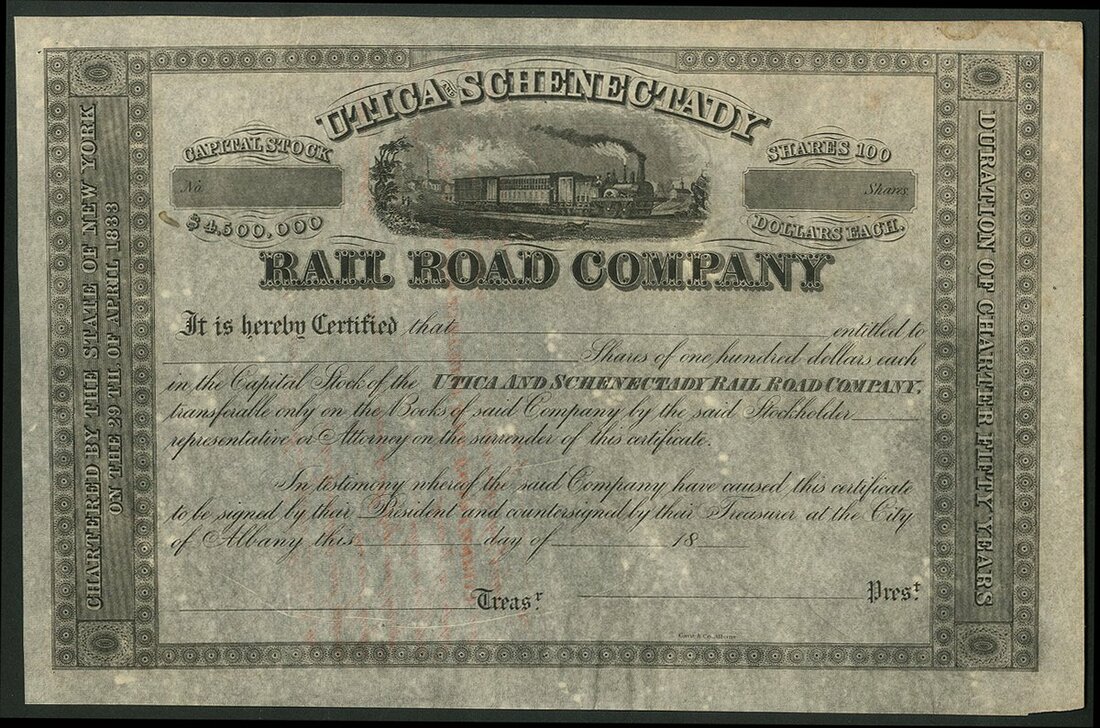 UTICA AND SCHENECTADY
CAPITAL STOCK
No.
$4,500,000
SHARES 100
Shares.
DOLLARS EACH.
RAIL ROAD COMPANY
It is hereby Certified that entitled to
Shares of one hundred dollars each
in the Capital Stock of the UTICA AND SCHENECTADY RAIL ROAD COMPANY,
transferable only on the Books of said Company by the said Stockholder
representative or Attorney on the surrender of this certificate.
In testimony whereof the said Company have caused this certificate
to be signed by their President and countersigned by their Treasurer at the City
of Albany this day of 18
Treasr.
Prest.
CHARTERED BY THE STATE OF NEW YORK
ON THE 29TH OF APRIL 1833
DURATION OF CHARTER FIFTY YEARS